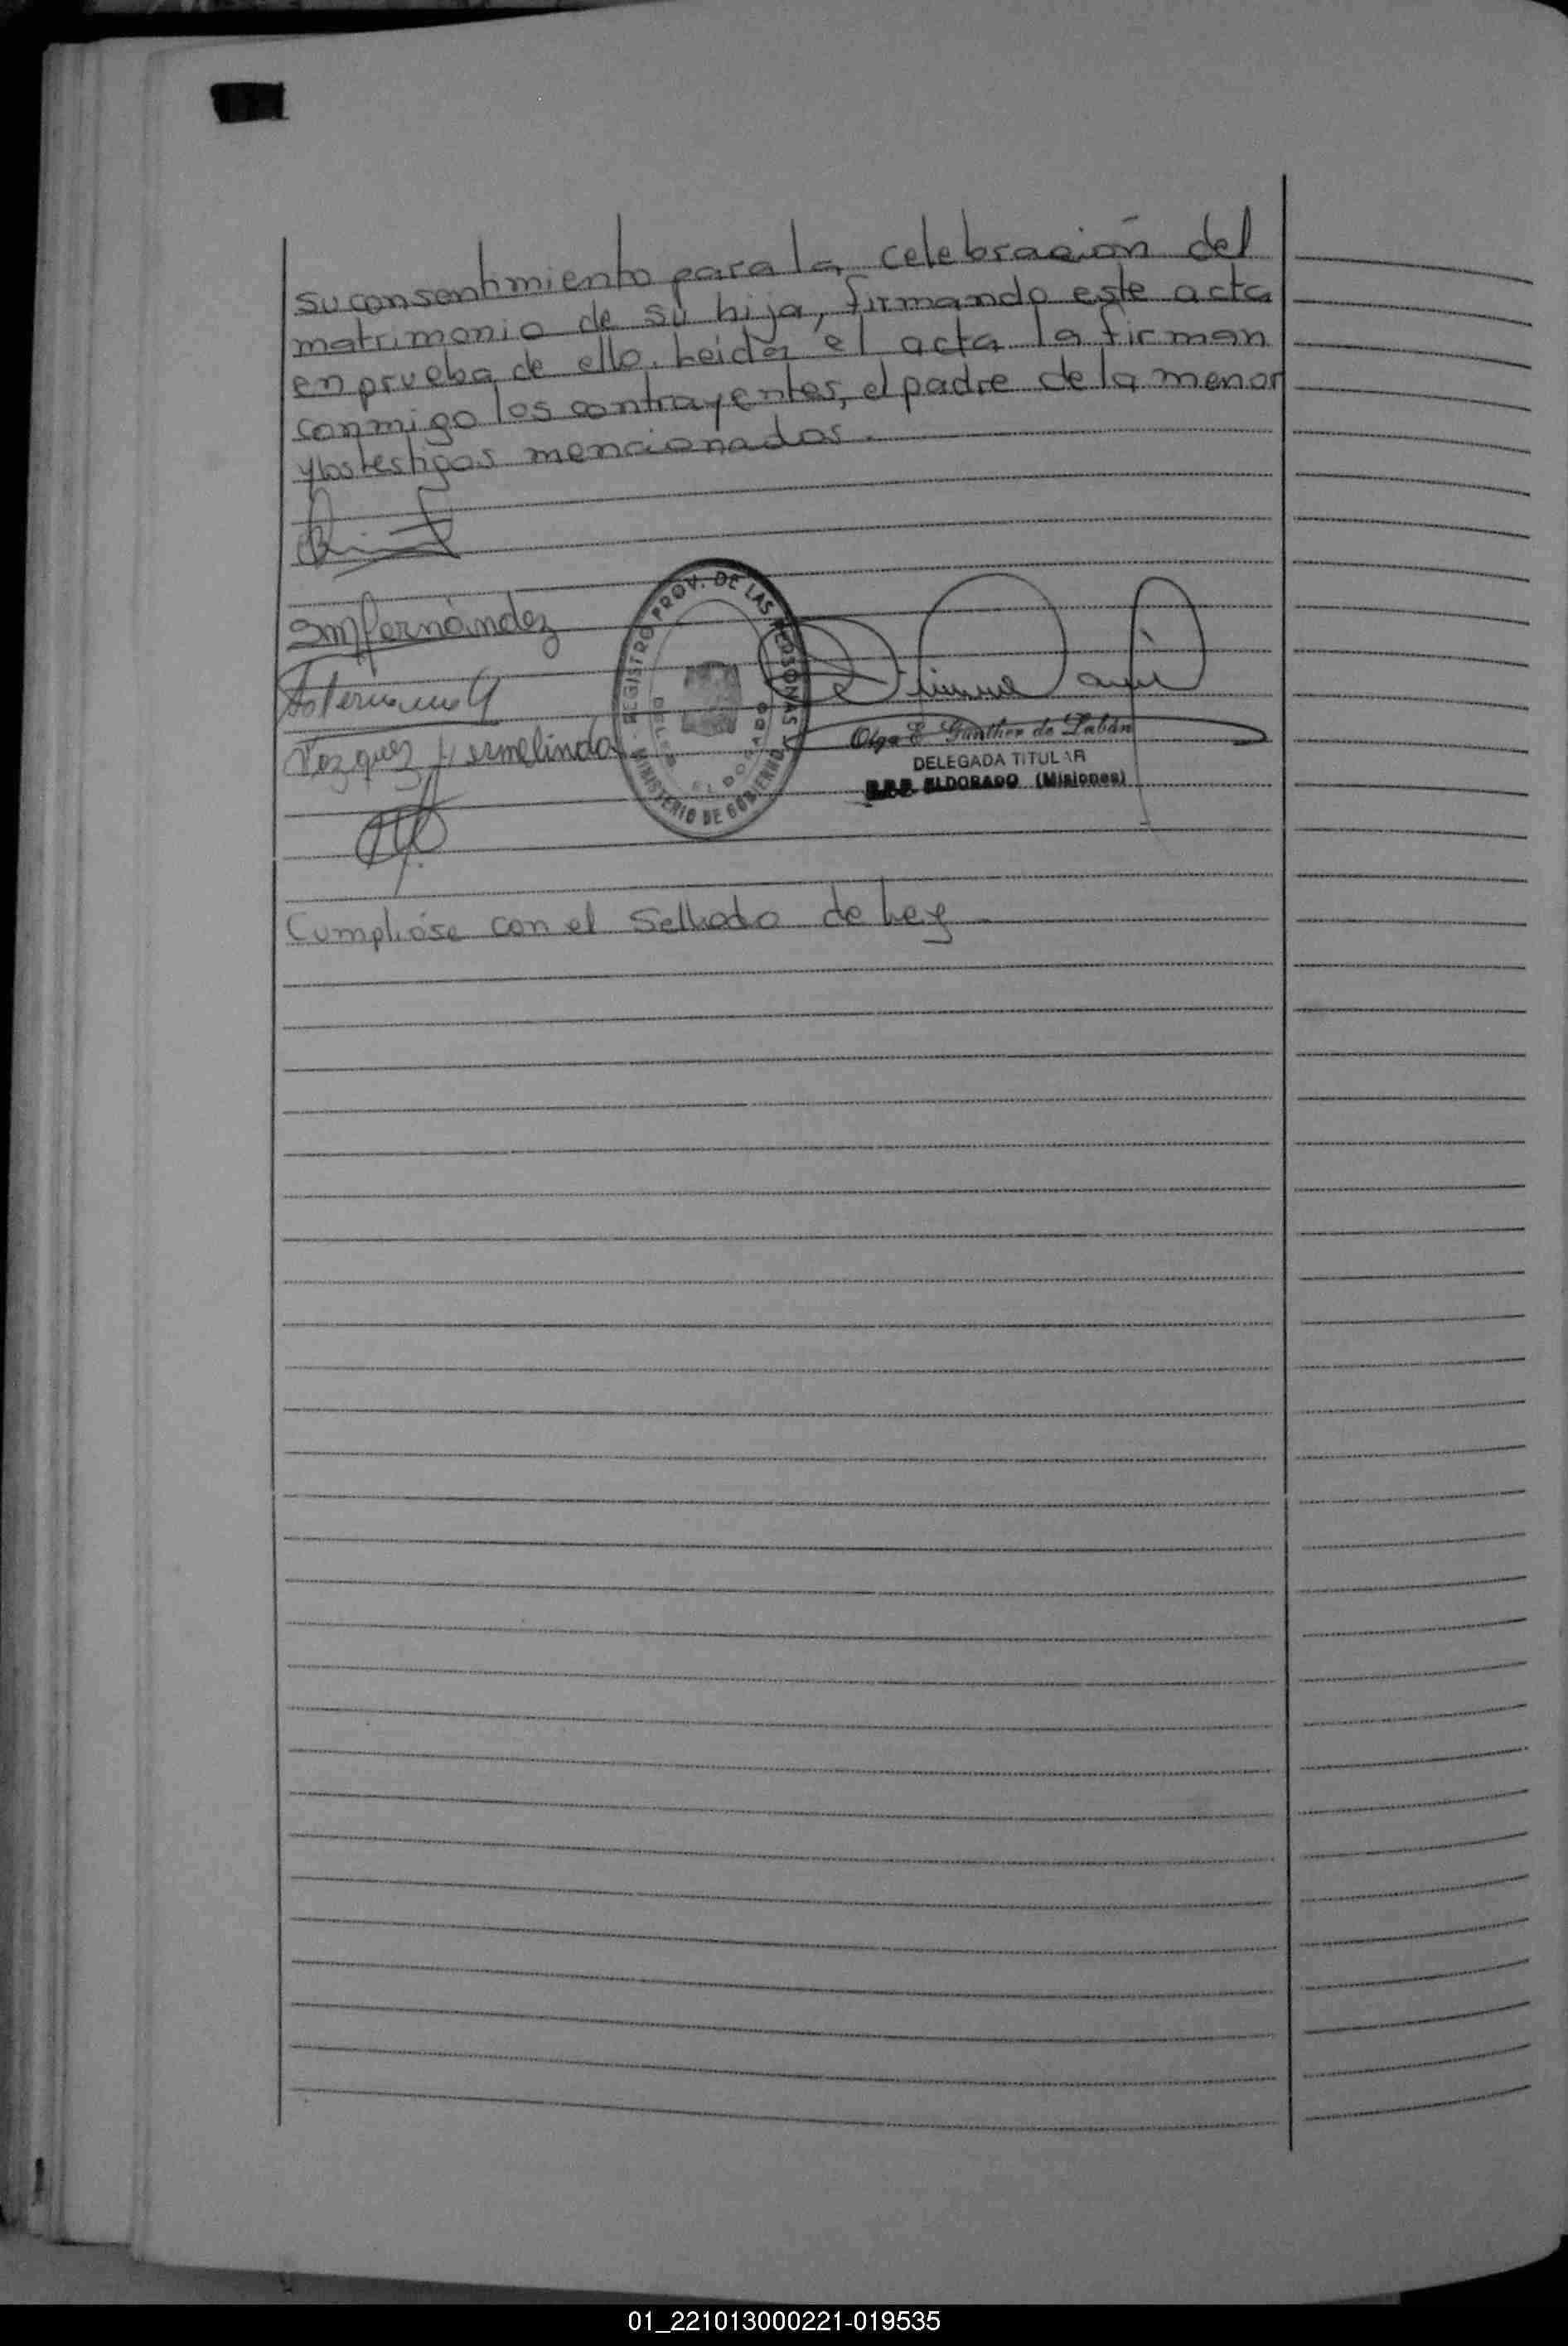 su consentimiento para la celebración del
matrimonio de su hija, firmando este acta
en prueba de ello. Leida el acta la firman
conmigo los contrayentes, el padre de la menor
y los testigos mencionados.
Fernández
Vazquez Hermelinda
REGISTRO PROV. DE LAS PERSONAS
MINISTERIO DE GOBIERNO
ELDORADO
Olga E. Günther de Labán
DELEGADA TITULAR
R.P.P. ELDORADO (Misiones)
Cumplióse con el Sellado de Ley
01_221013000221-019535